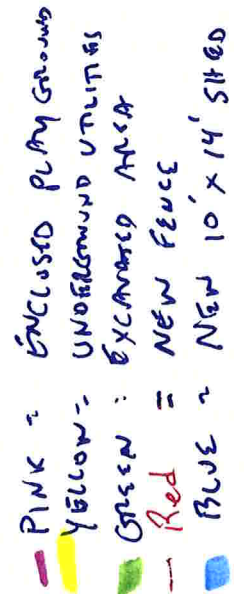 PINK - ENCLOSED PLAY GROUND
YELLOW - UNDERGROUND UTILITIES
GREEN : EXCAVATED AREA
Red = NEW FENCE
BLUE ~ NEW 10' x 14' SHED